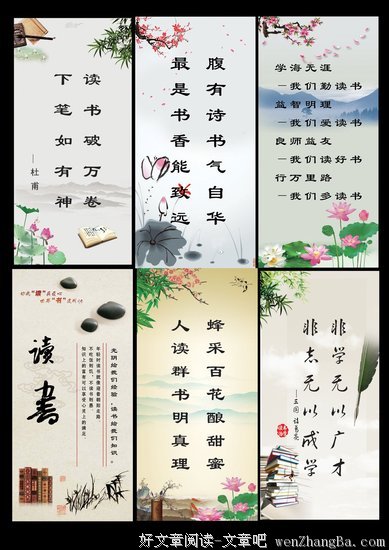 读书破万卷
下笔如有神
——杜甫
腹有诗书气自华
最是书香能致远
学海无涯
—我们勤读书
益智明理
—我们爱读书
良师益友
—我们读好书
行万里路
—我们多读书
读书
光阴给我们经验，读书给我们知识。
不吃饭则饥，不读书则愚。
蜂采百花酿甜蜜
人读群书明真理
非学无以广才
非志无以成学
——三国 诸葛亮
好文章阅读-文章吧 wenZhangBa.com